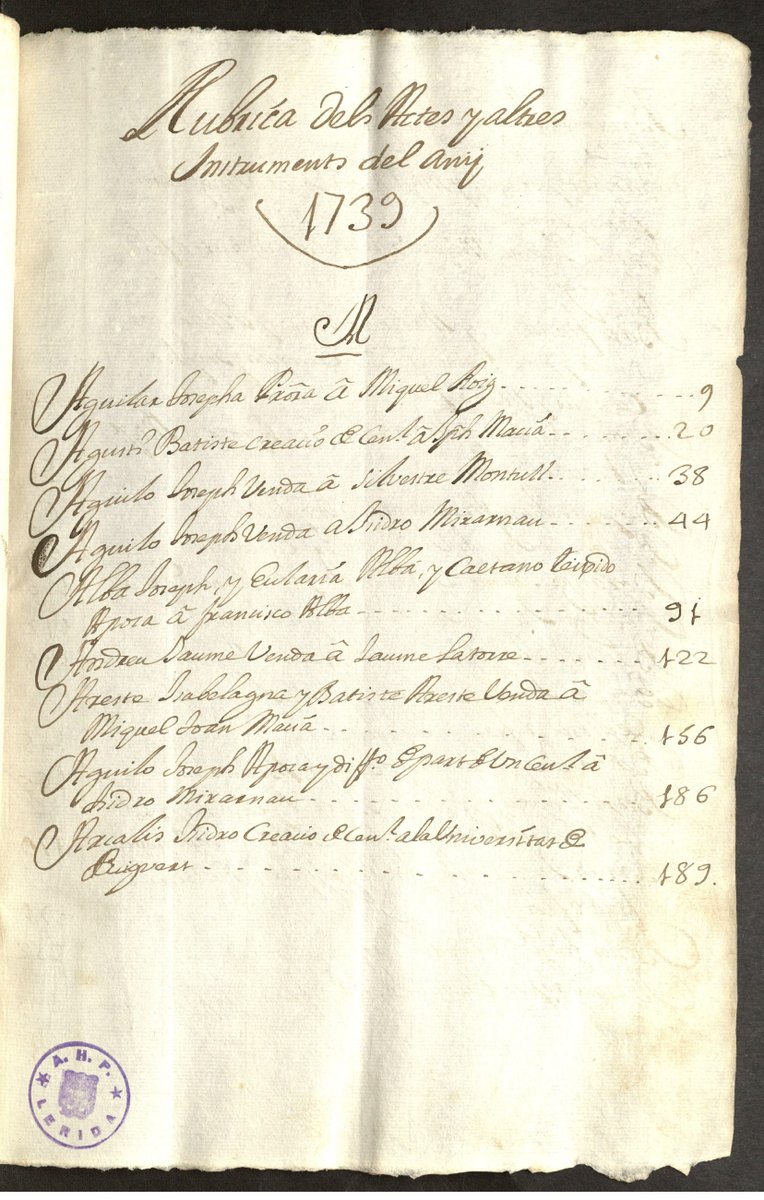 Rubrica dels Actes y altres
Instruments del any
1739
A
Aguilar Josepha Prõra â Miquel Roig 9
Agustí Batiste creacio de Cens.l â Jph Maciá 20
Aguilo Joseph Venda â Silvestre Montull 38
Aguilo Joseph Venda a Isidro Mirarnau 44
Alba Joseph, y Eularia Alba, y Caetano
Apoca â Francisco Alba 91
Andreu Jaume Venda â Jaume Latorre 122
Areste Isabel agna y Batiste Areste Venda â
Miquel Joan Maciá 156
Aguilo Joseph Apoca y diffo. de part de Un Cens.l â
Isidro Mirarnau 186
Arcalis Isidro Creacio de Cens.l a la Universitat de
Puigvert 189.
A. H. P.
LERIDA